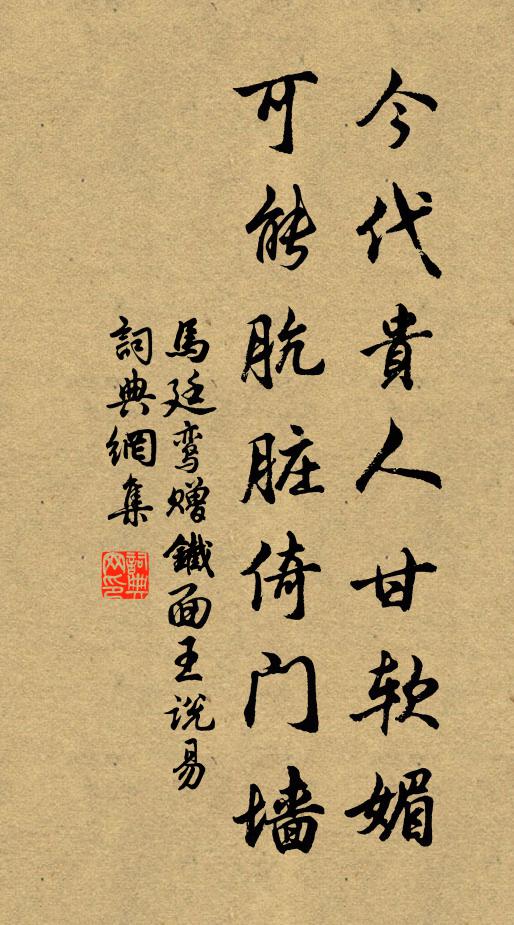 今代貴人甘软媚
可能肮脏倚门墙
馬廷鸾赠鐵面王说易
詞典網集
詞典网印